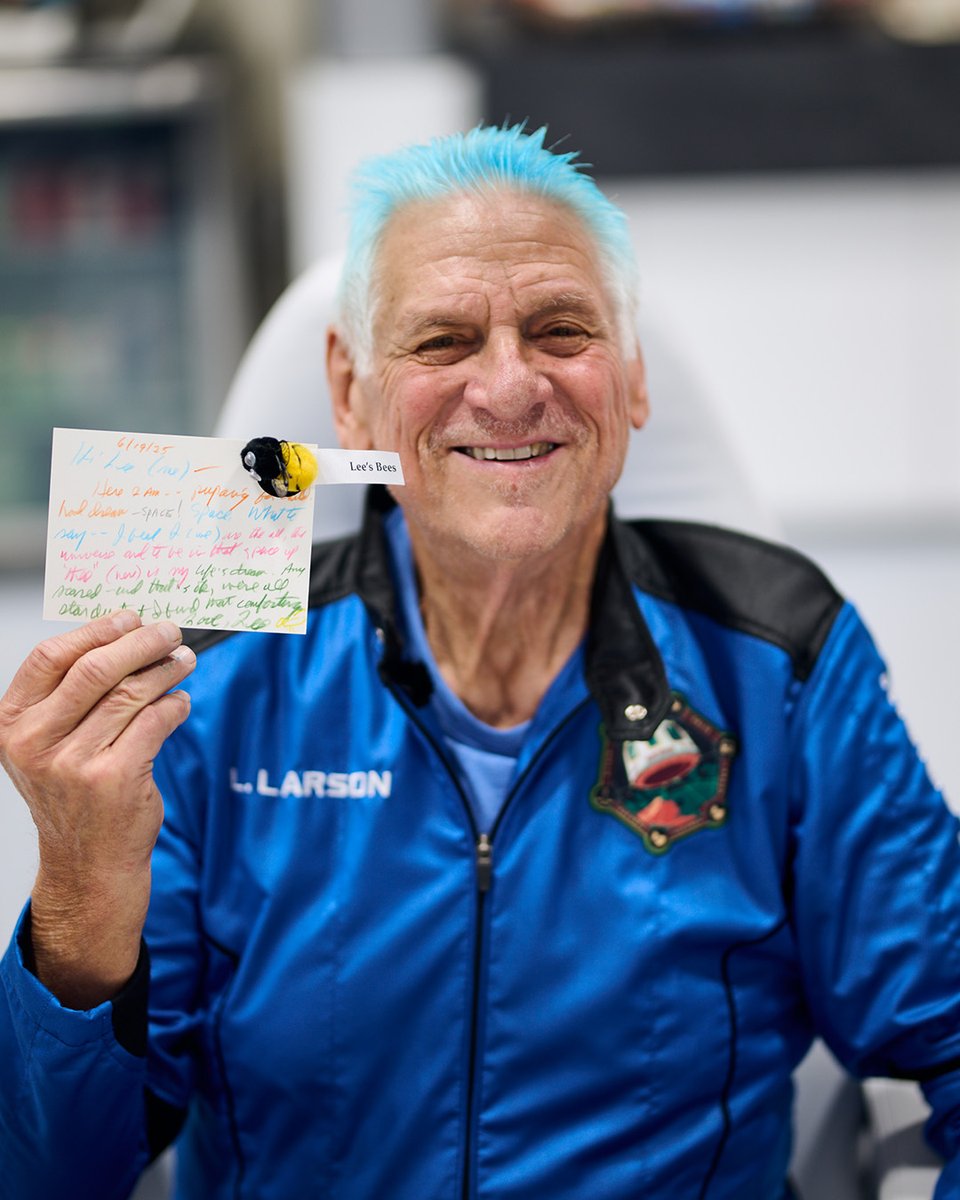 6/19/25
Hi Lee (me) —
Here I Am -- preparing for
had dream - SPACE! Space What to
say -- I feel I (we) are the all, the
universe and to be in that space up
"there" (now) is my life's dream. Any
scared - and that's ok, we're all
stardust & I find that comforting
Love, Lee
Lee's Bees
L. LARSON